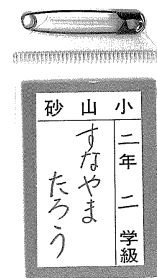 小山砂
二年二学級
すなやま
たろう